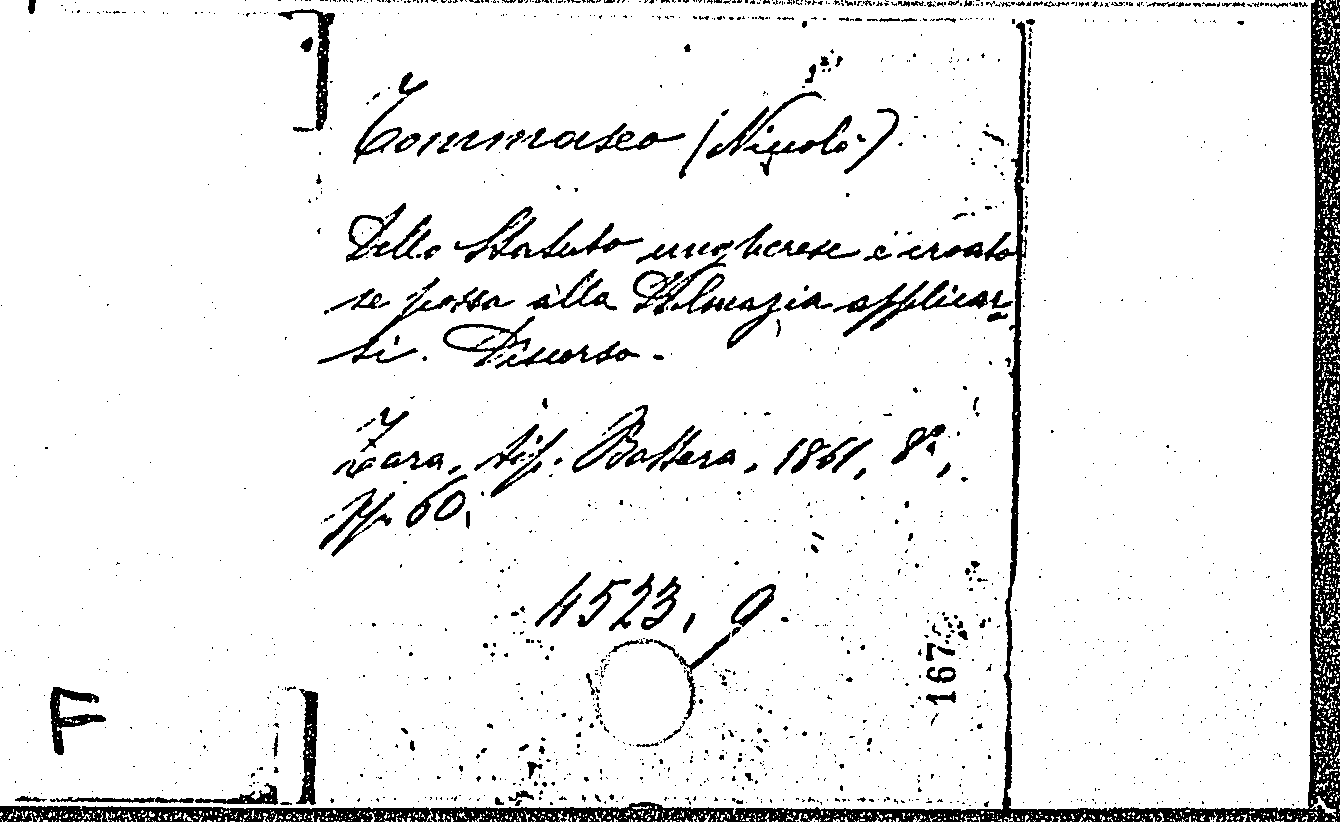 Tommaseo (Niccolò)
Dello Statuto ungherese e croato
se possa alla Dalmazia applicar-
si. Discorso.
Zara, tip. Battara, 1861, 8°,
pp. 60.
4523. 9.
167
F